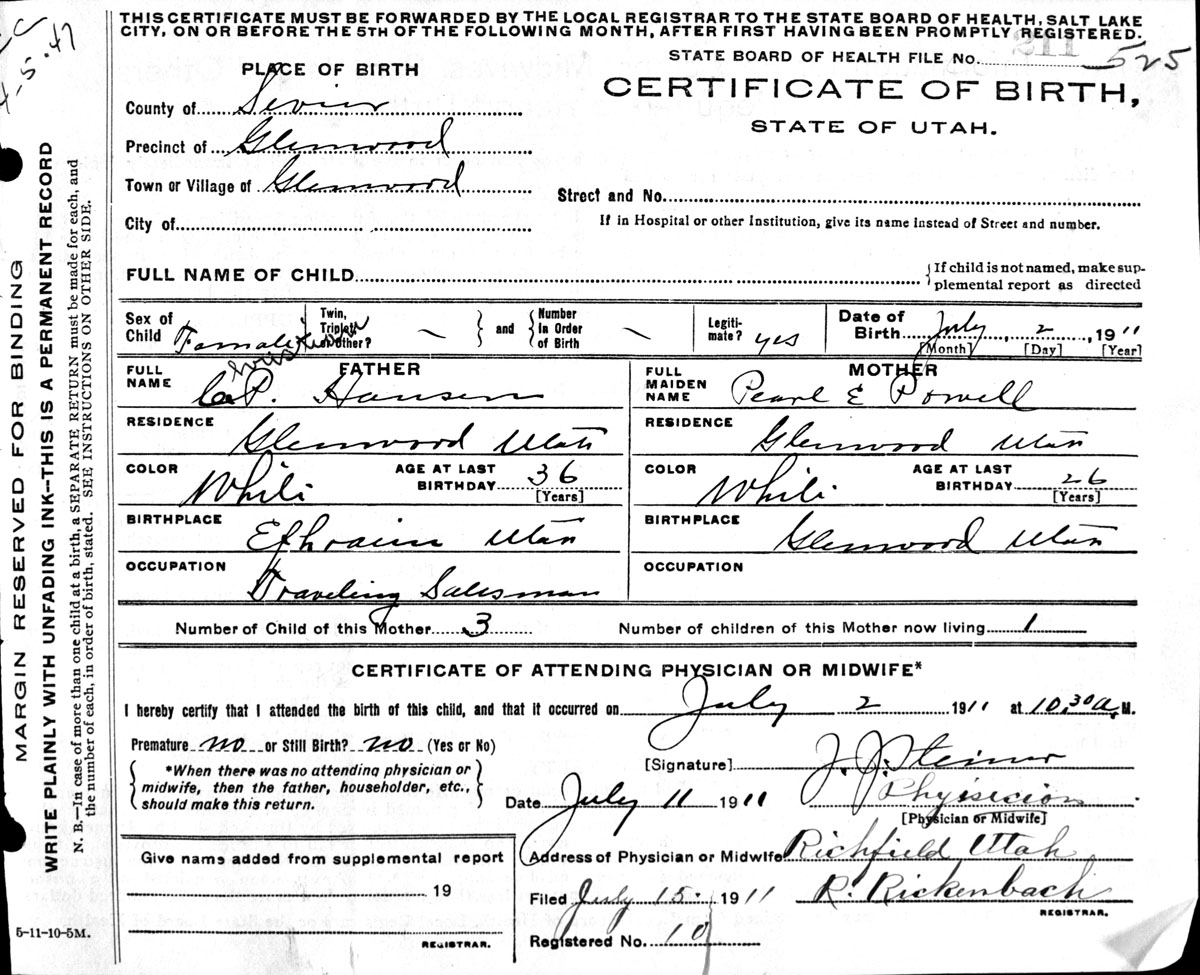 THIS CERTIFICATE MUST BE FORWARDED BY THE LOCAL REGISTRAR TO THE STATE BOARD OF HEALTH, SALT LAKE
CITY, ON OR BEFORE THE 5TH OF THE FOLLOWING MONTH, AFTER FIRST HAVING BEEN PROMPTLY REGISTERED.
4-5-47
STATE BOARD OF HEALTH FILE No. 211 525
PLACE OF BIRTH
CERTIFICATE OF BIRTH,
STATE OF UTAH.
County of Sevier
Precinct of Glenwood
Town or Village of Glenwood
Street and No.
City of
If in Hospital or other Institution, give its name instead of Street and number.
FULL NAME OF CHILD
{If child is not named, make sup-
plemental report as directed
Sex of Child Female
Twin, Triplet or Other? —
and
Number in Order of Birth —
Legiti-mate? yes
Date of Birth July 2, 1911
[Month] [Day] [Year]
FATHER
FULL NAME C. P. Hansen
MOTHER
FULL MAIDEN NAME Pearl E Powell
RESIDENCE Glenwood Utah
RESIDENCE Glenwood Utah
COLOR White
AGE AT LAST BIRTHDAY 36 [Years]
COLOR White
AGE AT LAST BIRTHDAY 26 [Years]
BIRTHPLACE Ephraim Utah
BIRTHPLACE Glenwood Utah
OCCUPATION Traveling Salesman
OCCUPATION
Number of Child of this Mother 3
Number of children of this Mother now living 1
CERTIFICATE OF ATTENDING PHYSICIAN OR MIDWIFE*
I hereby certify that I attended the birth of this child, and that it occurred on July 2 1911 at 10,30 a, M.
Premature no or Still Birth? no (Yes or No)
{*When there was no attending physician or
midwife, then the father, householder, etc.,
should make this return.}
[Signature] J. J. Steiner
Physician
[Physician or Midwife]
Date July 11 1911
Address of Physician or Midwife Richfield Utah
Give name added from supplemental report
19
REGISTRAR.
Filed July 15. 1911
R. Rickenbach
REGISTRAR.
Registered No. 10
5-11-10-5M.
MARGIN RESERVED FOR BINDING
WRITE PLAINLY WITH UNFADING INK—THIS IS A PERMANENT RECORD
N. B.—In case of more than one child at a birth, a SEPARATE RETURN must be made for each, and
the number of each, in order of birth, stated. SEE INSTRUCTIONS ON OTHER SIDE.